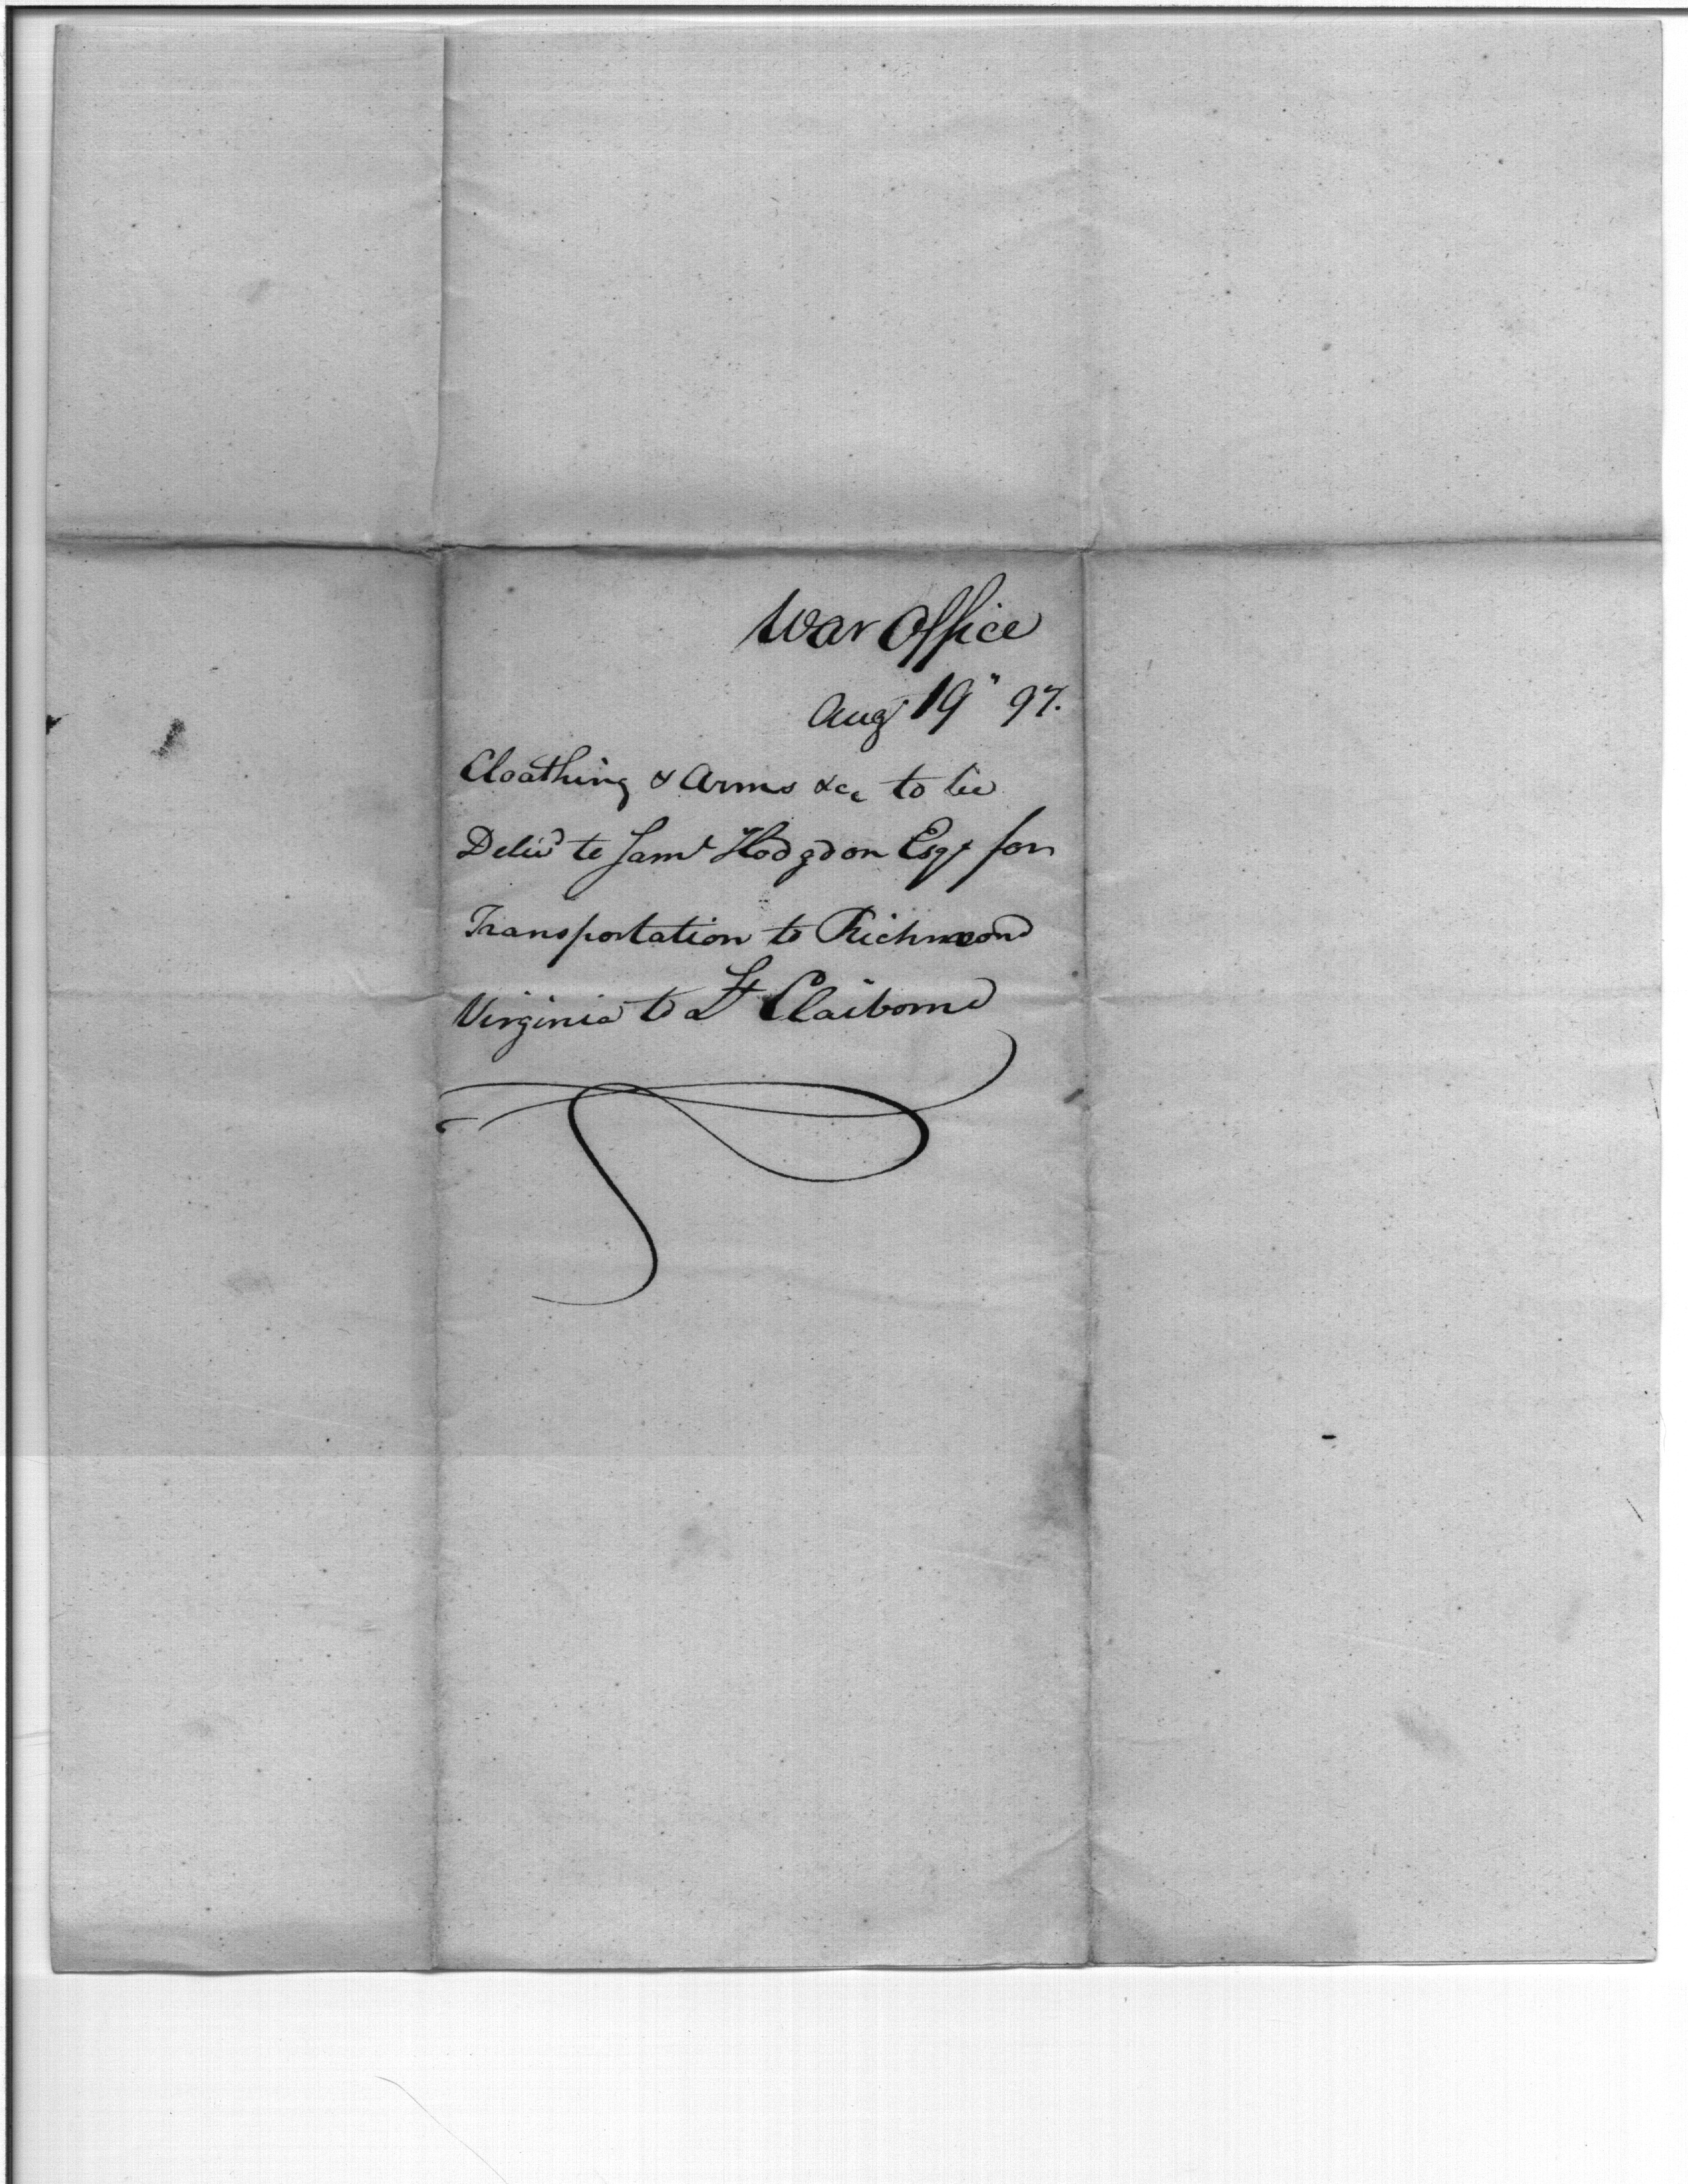 War Office
Augt 19" 97.
Cloathing & Arms &c. to be
Delivd to Saml Hodgdon Esqr for
Transportation to Richmond
Virginia to Lt Claiborne